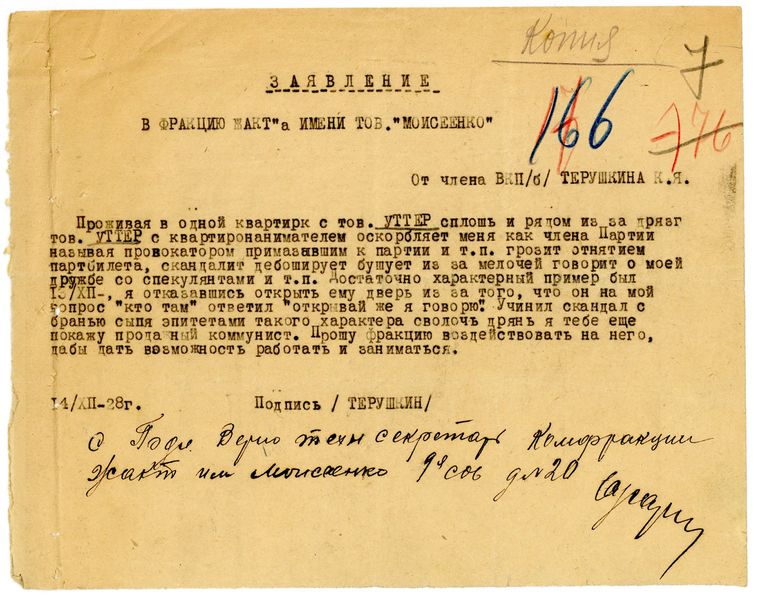 Копия
7
ЗАЯВЛЕНИЕ
166
776
В ФРАКЦИЮ ЖАКТ"а ИМЕНИ ТОВ."МОИСЕЕНКО"
От члена ВКП/б/ ТЕРУШКИНА К.Я.
Проживая в одной квартирк с тов. УТТЕР сплошь и рядом из за дрязг
тов. УТТЕР с квартиронанимателем оскорбляет меня как члена Партии
называя провокатором примазавшим к партии и т.п. грозит отнятием
партбилета, скандалит дебоширует бушует из за мелочей говорит о моей
дружбе со спекулянтами и т.п. Достаточно характерный пример был
13/ХП-, я отказавшись открыть ему дверь из за того, что он на мой
вопрос "кто там" ответил "открывай же я говорю". Учинил скандал с
бранью сыпя эпитетами такого характера сволочь дрянь я тебе еще
покажу продажный коммунист. Прошу фракцию воздействовать на него,
дабы дать возможность работать и заниматься.
14/ХП-28г. Подпись / ТЕРУШКИН/
С Подл. Верно техн секретарь Комфракции
Жакт им Моисеенко 9я сов д №20